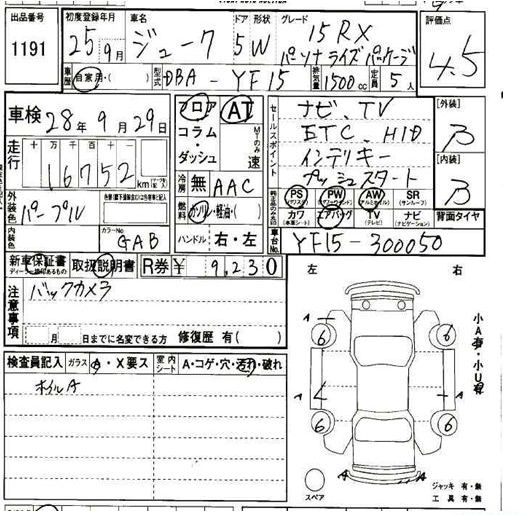 出品番号 1191
初度登録年月 25年9月
車名 ジューク
ドア 形状 5W
グレード 15RX パーソナライズパッケージ
評価点 4.5
車歴 自家用・( )
型式 DBA-YF15
排気量 1500cc
定員 5人
車検 28年9月29日
走行 十万 万 千 百 十 16752 km
外装色 パープル
カラーNo GAB
内装色
フロア AT
コラム・ダッシュ MTのみ 速
冷房 無 AAC
燃料 ガソリン・軽油・( )
ハンドル 右・左
セールスポイント
ナビ、TV
ETC、HID
インテリキー
プッシュスタート
PS PW AW SR (サンルーフ)
カワ (本革シート) エアバック TV (テレビ) ナビ (ナビゲーション)
車台No. YF15-300050
[外装] B
[内装] B
背面タイヤ
新車保証書 取扱説明書 R券 ¥9,230
注意事項 バックカメラ
年 月 日までに名変できる方 修復歴 有( )
検査員記入 ガラス A・X要ス 室内シート A・コゲ・穴・汚れ・破れ
ホイルA
左 右
6 6
A A
6 6
A A
小A有・小U有
スペア
ジャッキ 有・無
工具 有・無